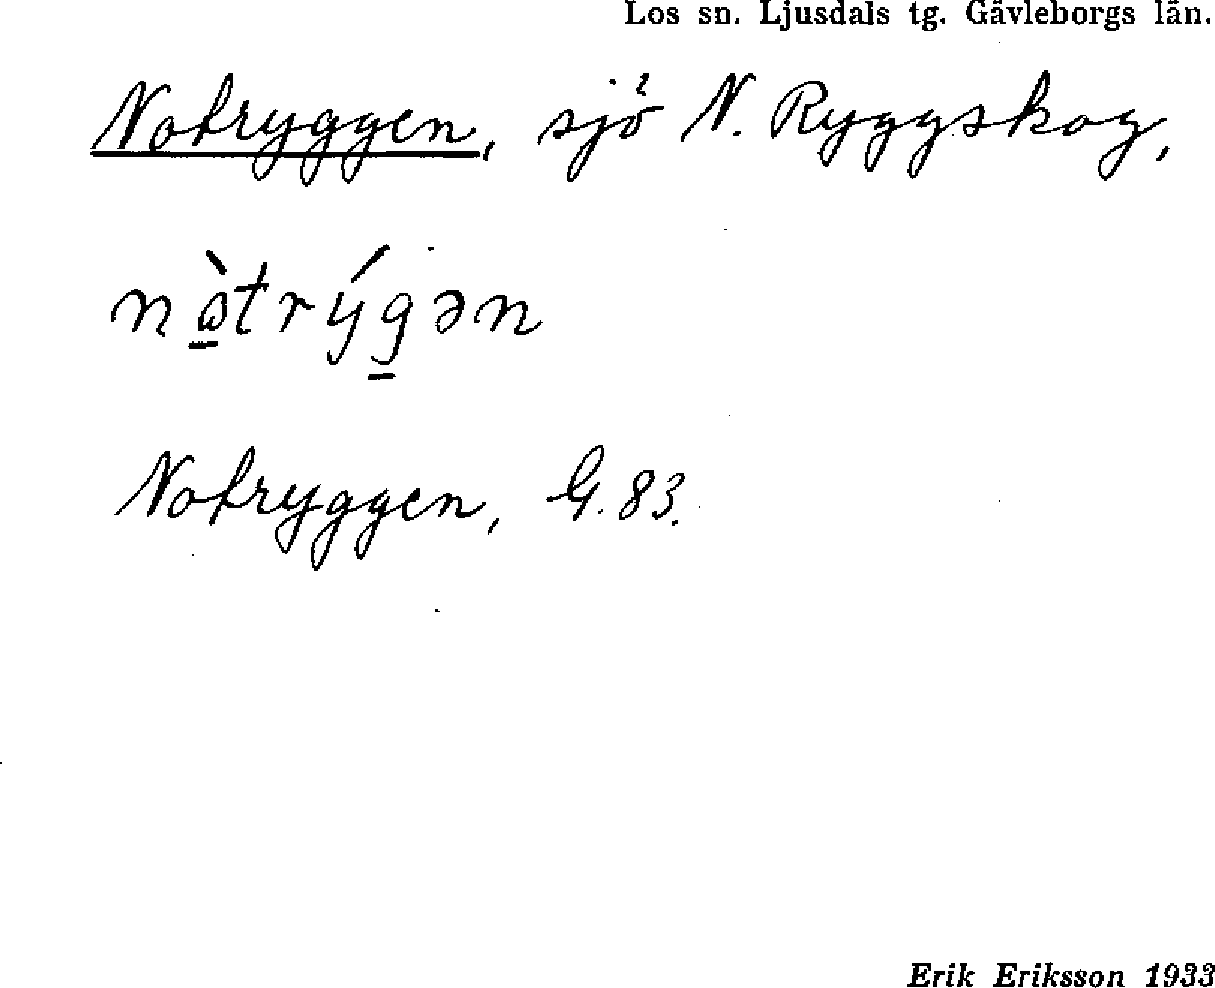 Los sn. Ljusdals tg. Gävleborgs län.
Notryggen, sjö N. Ryggskog,
nὼ̱trýg̱ən
Notryggen, G. 83.
Erik Eriksson 1933